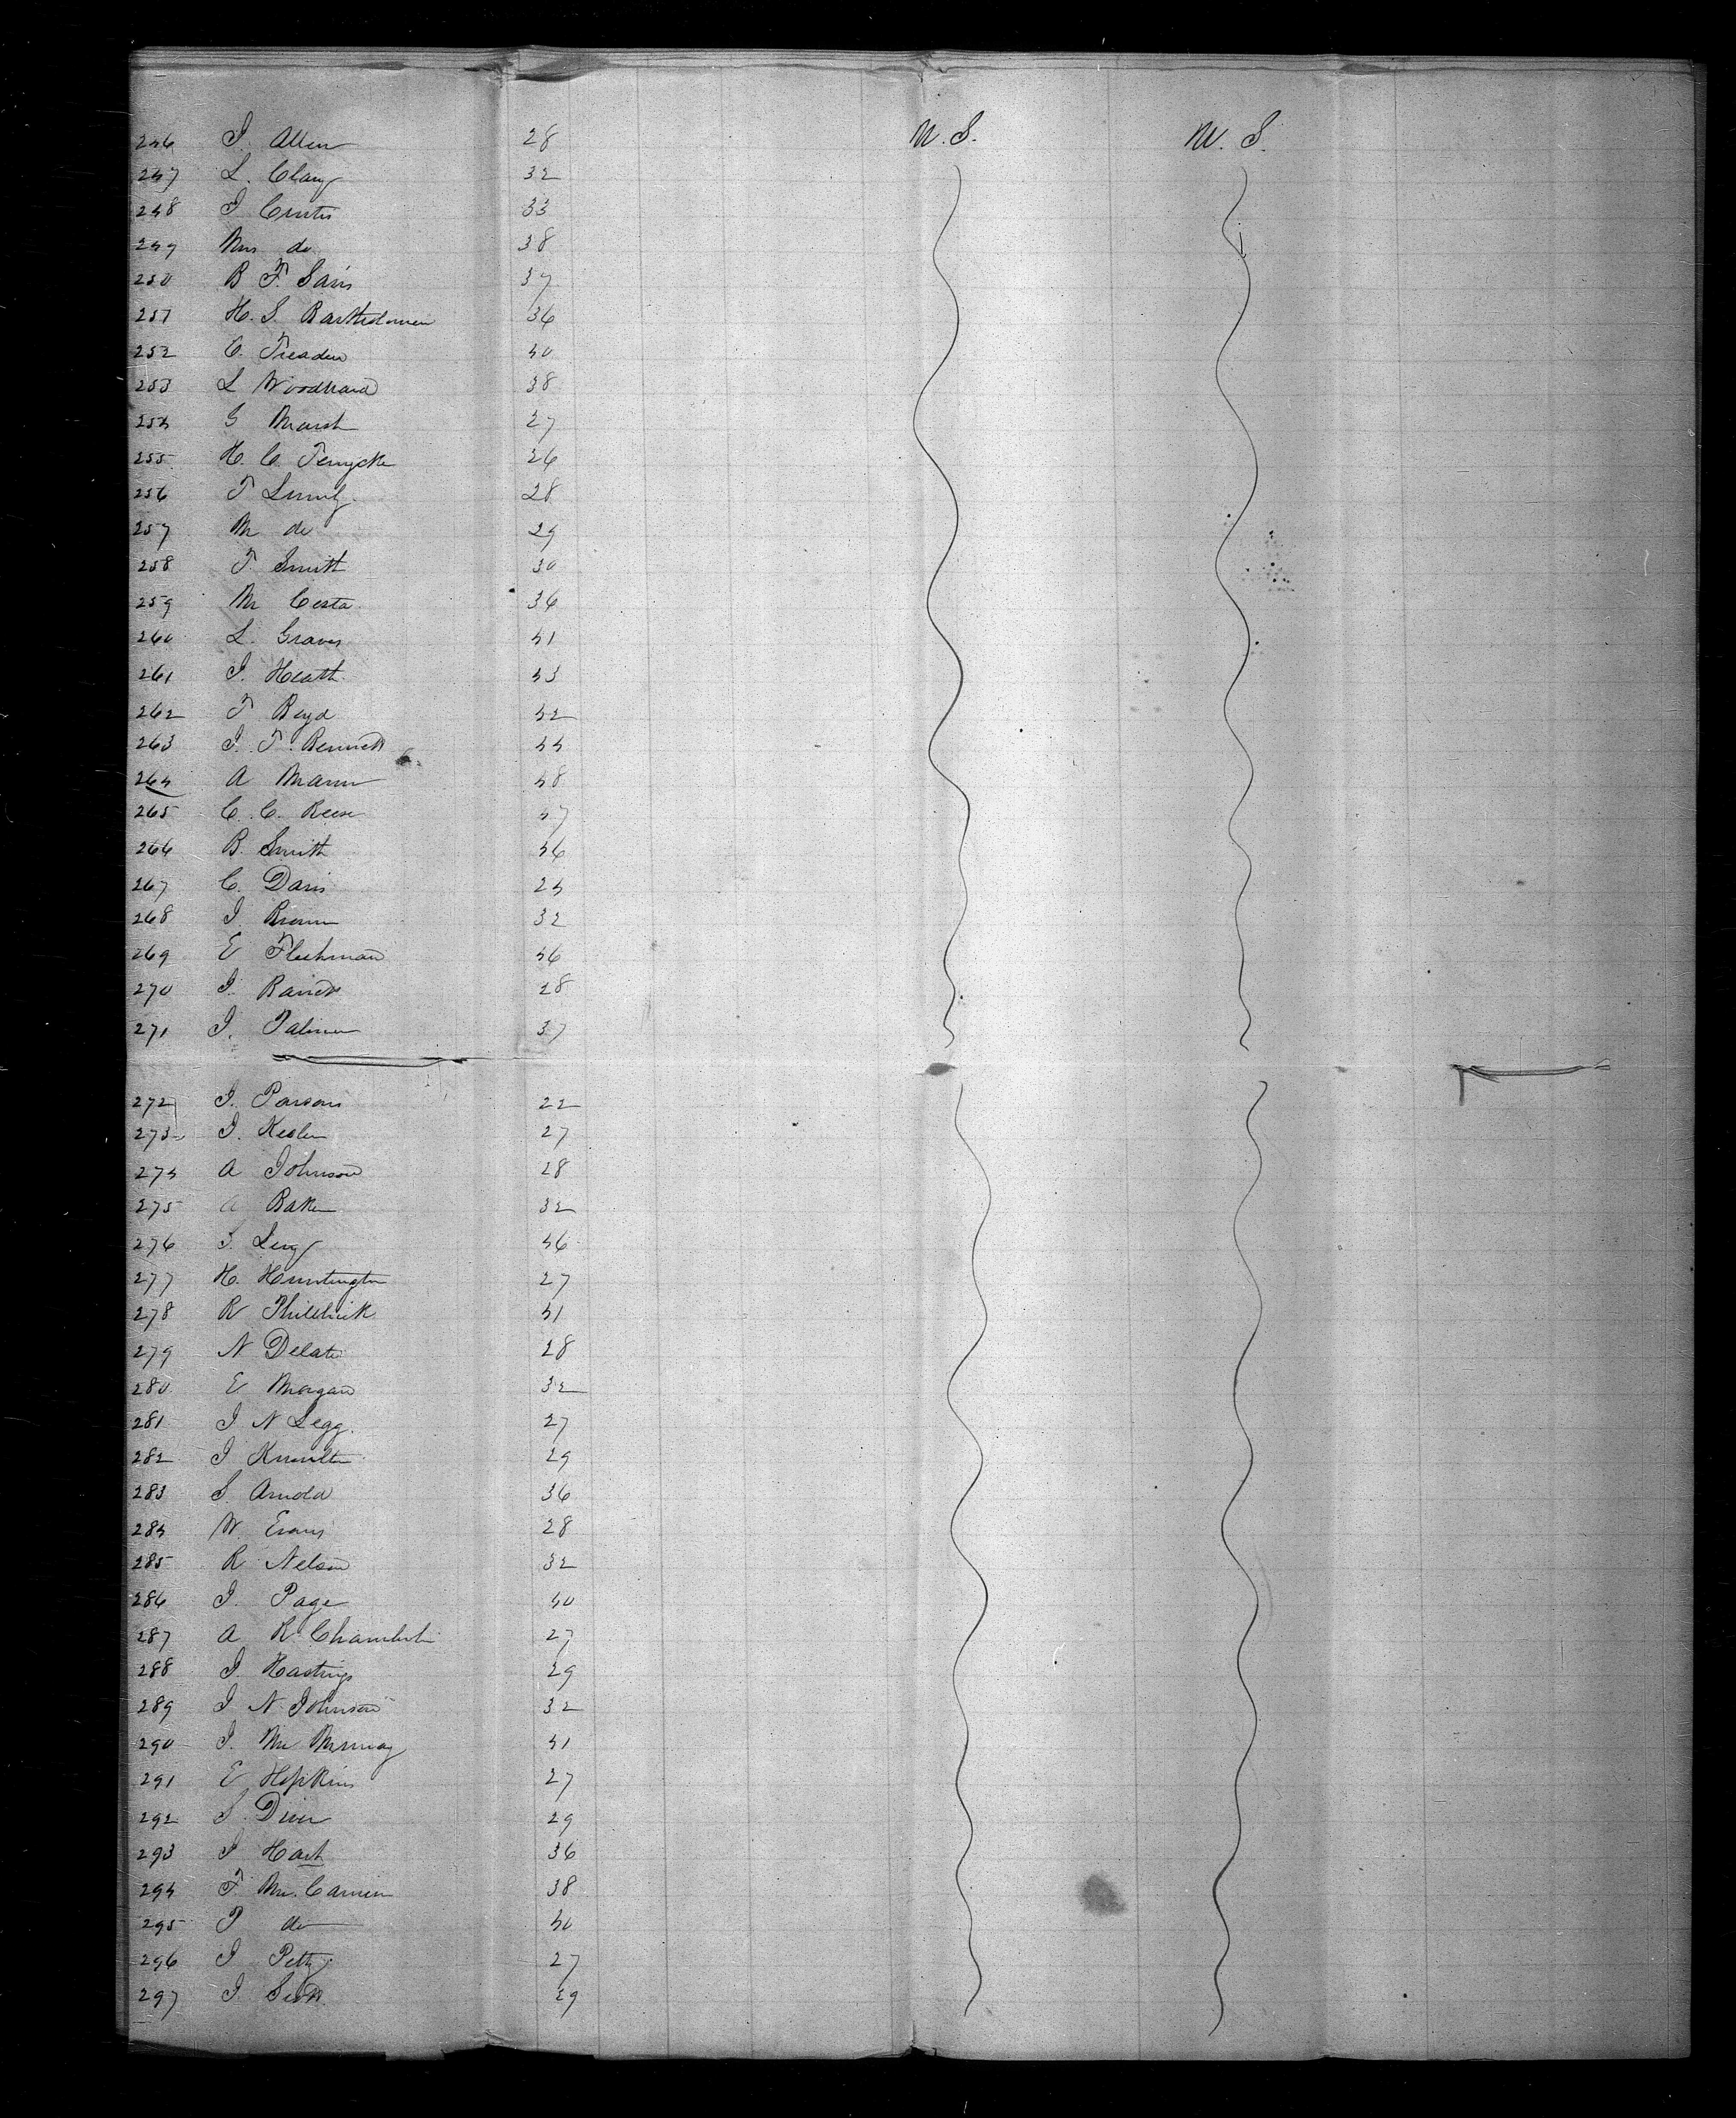 246 J. Allen 28 U. S. U. S.
247 L. Clary 32
248 J. Curtis 33
249 Mrs do 38
250 B F. 37
251 H. S. Bartholomew 36
252 C. Treaden 40
253 L Woodward 38
254 G Marsh 27
255 H. C. 26
256 F 28
257 M do 29
258 F. Smith 30
259 M Costa 36
260 L. Graves 41
261 J. Heath 43
262 F Boyd 42
263 J. F. Bennett 44
264 A Mann 48
265 C. C. Reese 47
266 B. Smith 46
267 C. Davis 24
268 J. Brown 32
269 E Fleshman 46
270 J. 28
271 J. Palmer 37
272 J. Parsons 22
273 J. Keeler 27
274 A Johnson 28
275 A Baker 32
276 S. Levy 46
277 H. Huntington 27
278 R Philbrick 41
279 N Delate 28
280 E Morgan 32
281 J N Legg. 27
282 J Knowlton 29
283 S. Arnold 36
284 W. Evans 28
285 R Nelson 32
286 J. Page 40
287 A R Chamberlin 27
288 J. Hastings 29
289 J N Johnson 32
290 J. Mc 41
291 E Hopkins 27
292 S. 29
293 J Hart 36
294 F. Mc. 38
295 P do 40
296 J Petty 27
297 J. Scott 29